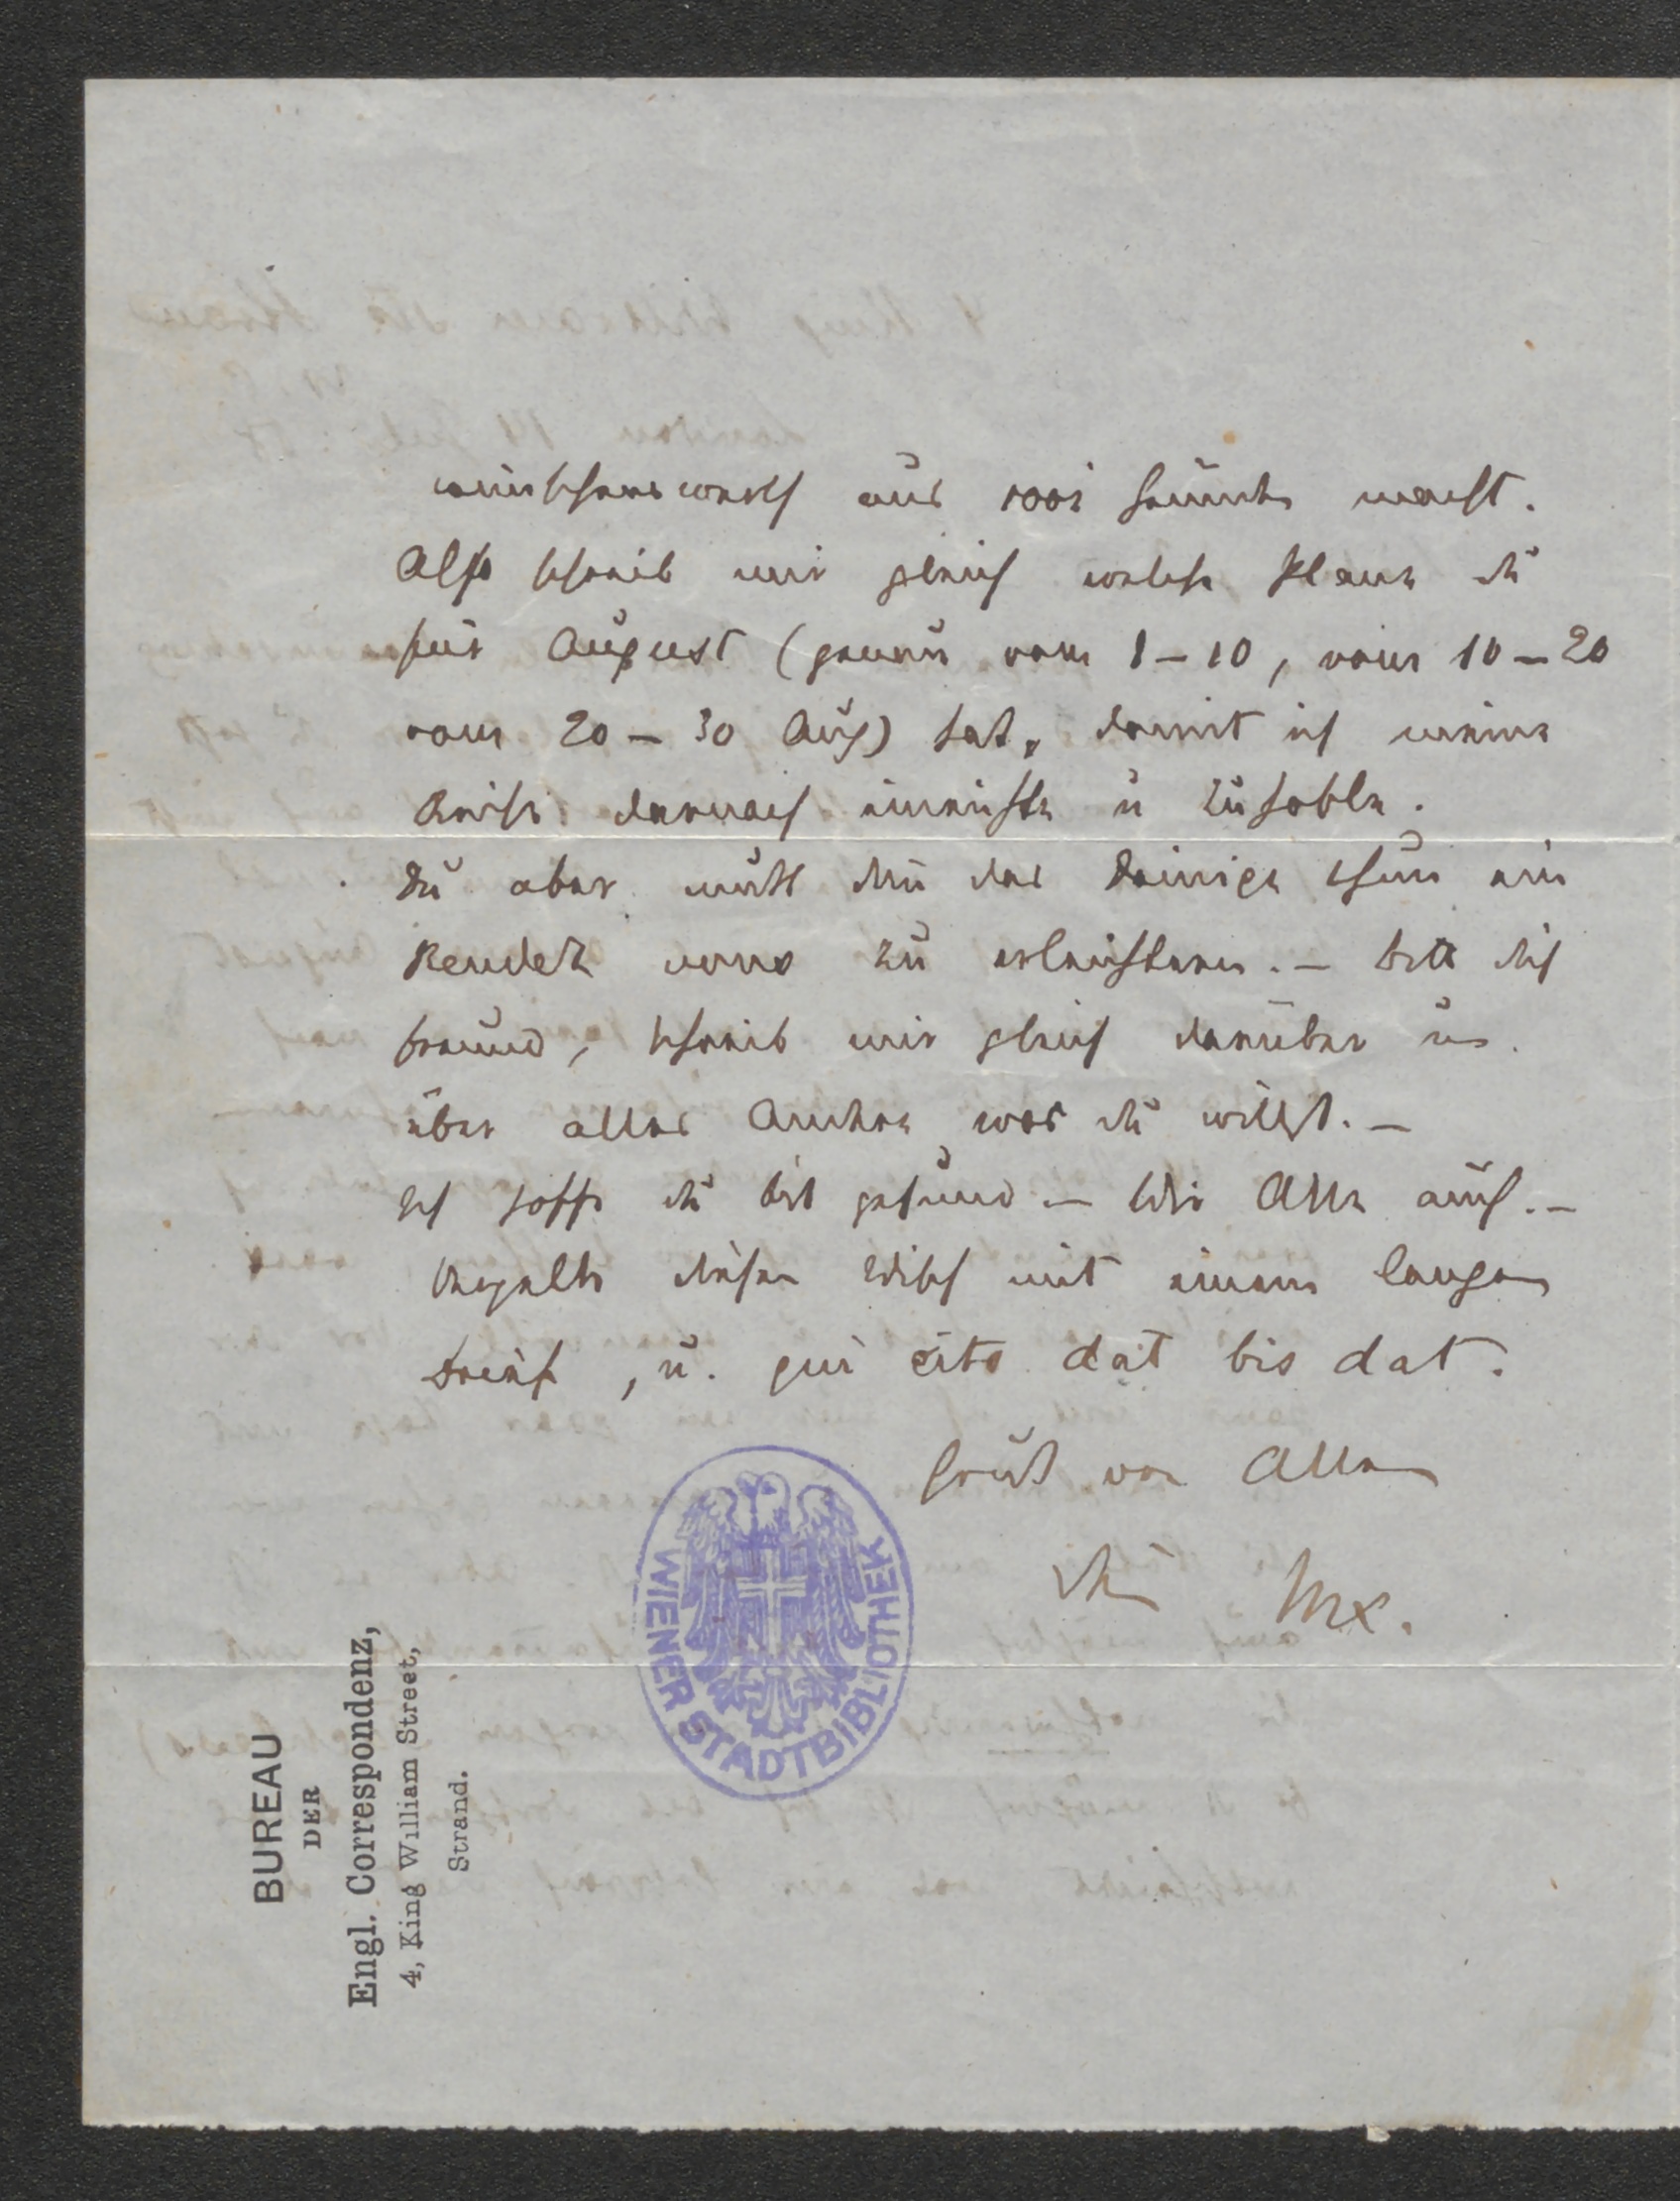 wünschenswerth aus zwei Gründen macht.
Also schreib mir gleich welche Plane du
für August (genau vom 1–10, vom 10–20
vom 20–30 Aug) hast, damit ich meine
Reise darnach einrichte u
Du aber mußt nun das Deinige thun ein
Rendez vous zu erleichtern. – Setz dich
Freund, schreib mir gleich darüber u.
über alles Andere was du willst. –
Ich hoffe du bist gesund – Wir Alle auch. –
Vergelte diesen Wisch mit einem langen
Brief, u. qui cito dat bis dat.
Gruß von Allen
dein Mx.
WIENER STADTBIBLIOTHEK
BUREAU
DER
Engl. Correspondenz,
4, King William Street,
Strand.